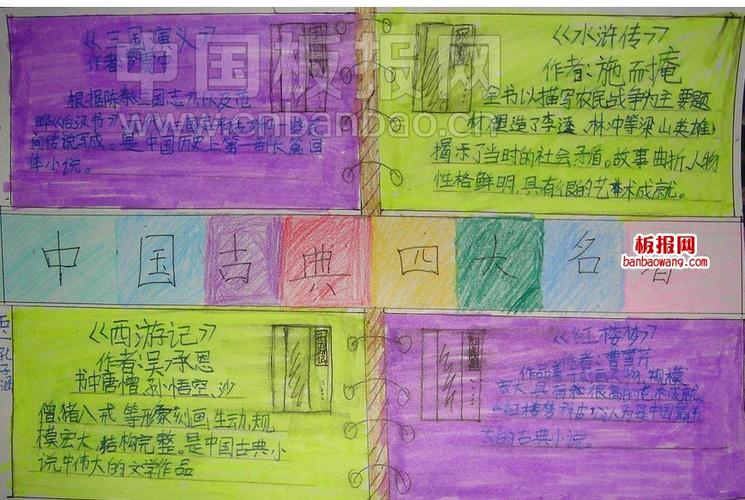 《三国演义》
作者:罗贯中
根据陈寿《三国志》以及范
晔《后汉书》
间传说写成。是中国历史上第一部长篇回
体小说。
《水浒传》
作者:施耐庵
全书以描写农民战争为主要题
材,塑造了李逵、林冲等梁山英雄,
揭示了当时的社会矛盾。故事曲折、人物
性格鲜明,具有很的艺术成就。
中国古典四大名著
板报网
banbaowang.com
《西游记》
作者:吴承恩
书中唐僧、孙悟空、沙
僧、猪八戒等形象刻画生动,规
模宏大,结构完整。是中国古典小
说中伟大的文学作品
《红楼梦》
作者:曹雪芹
规模
宏大,具有很高的艺术成就
《红楼梦》
大的古典小说。
中国板报网